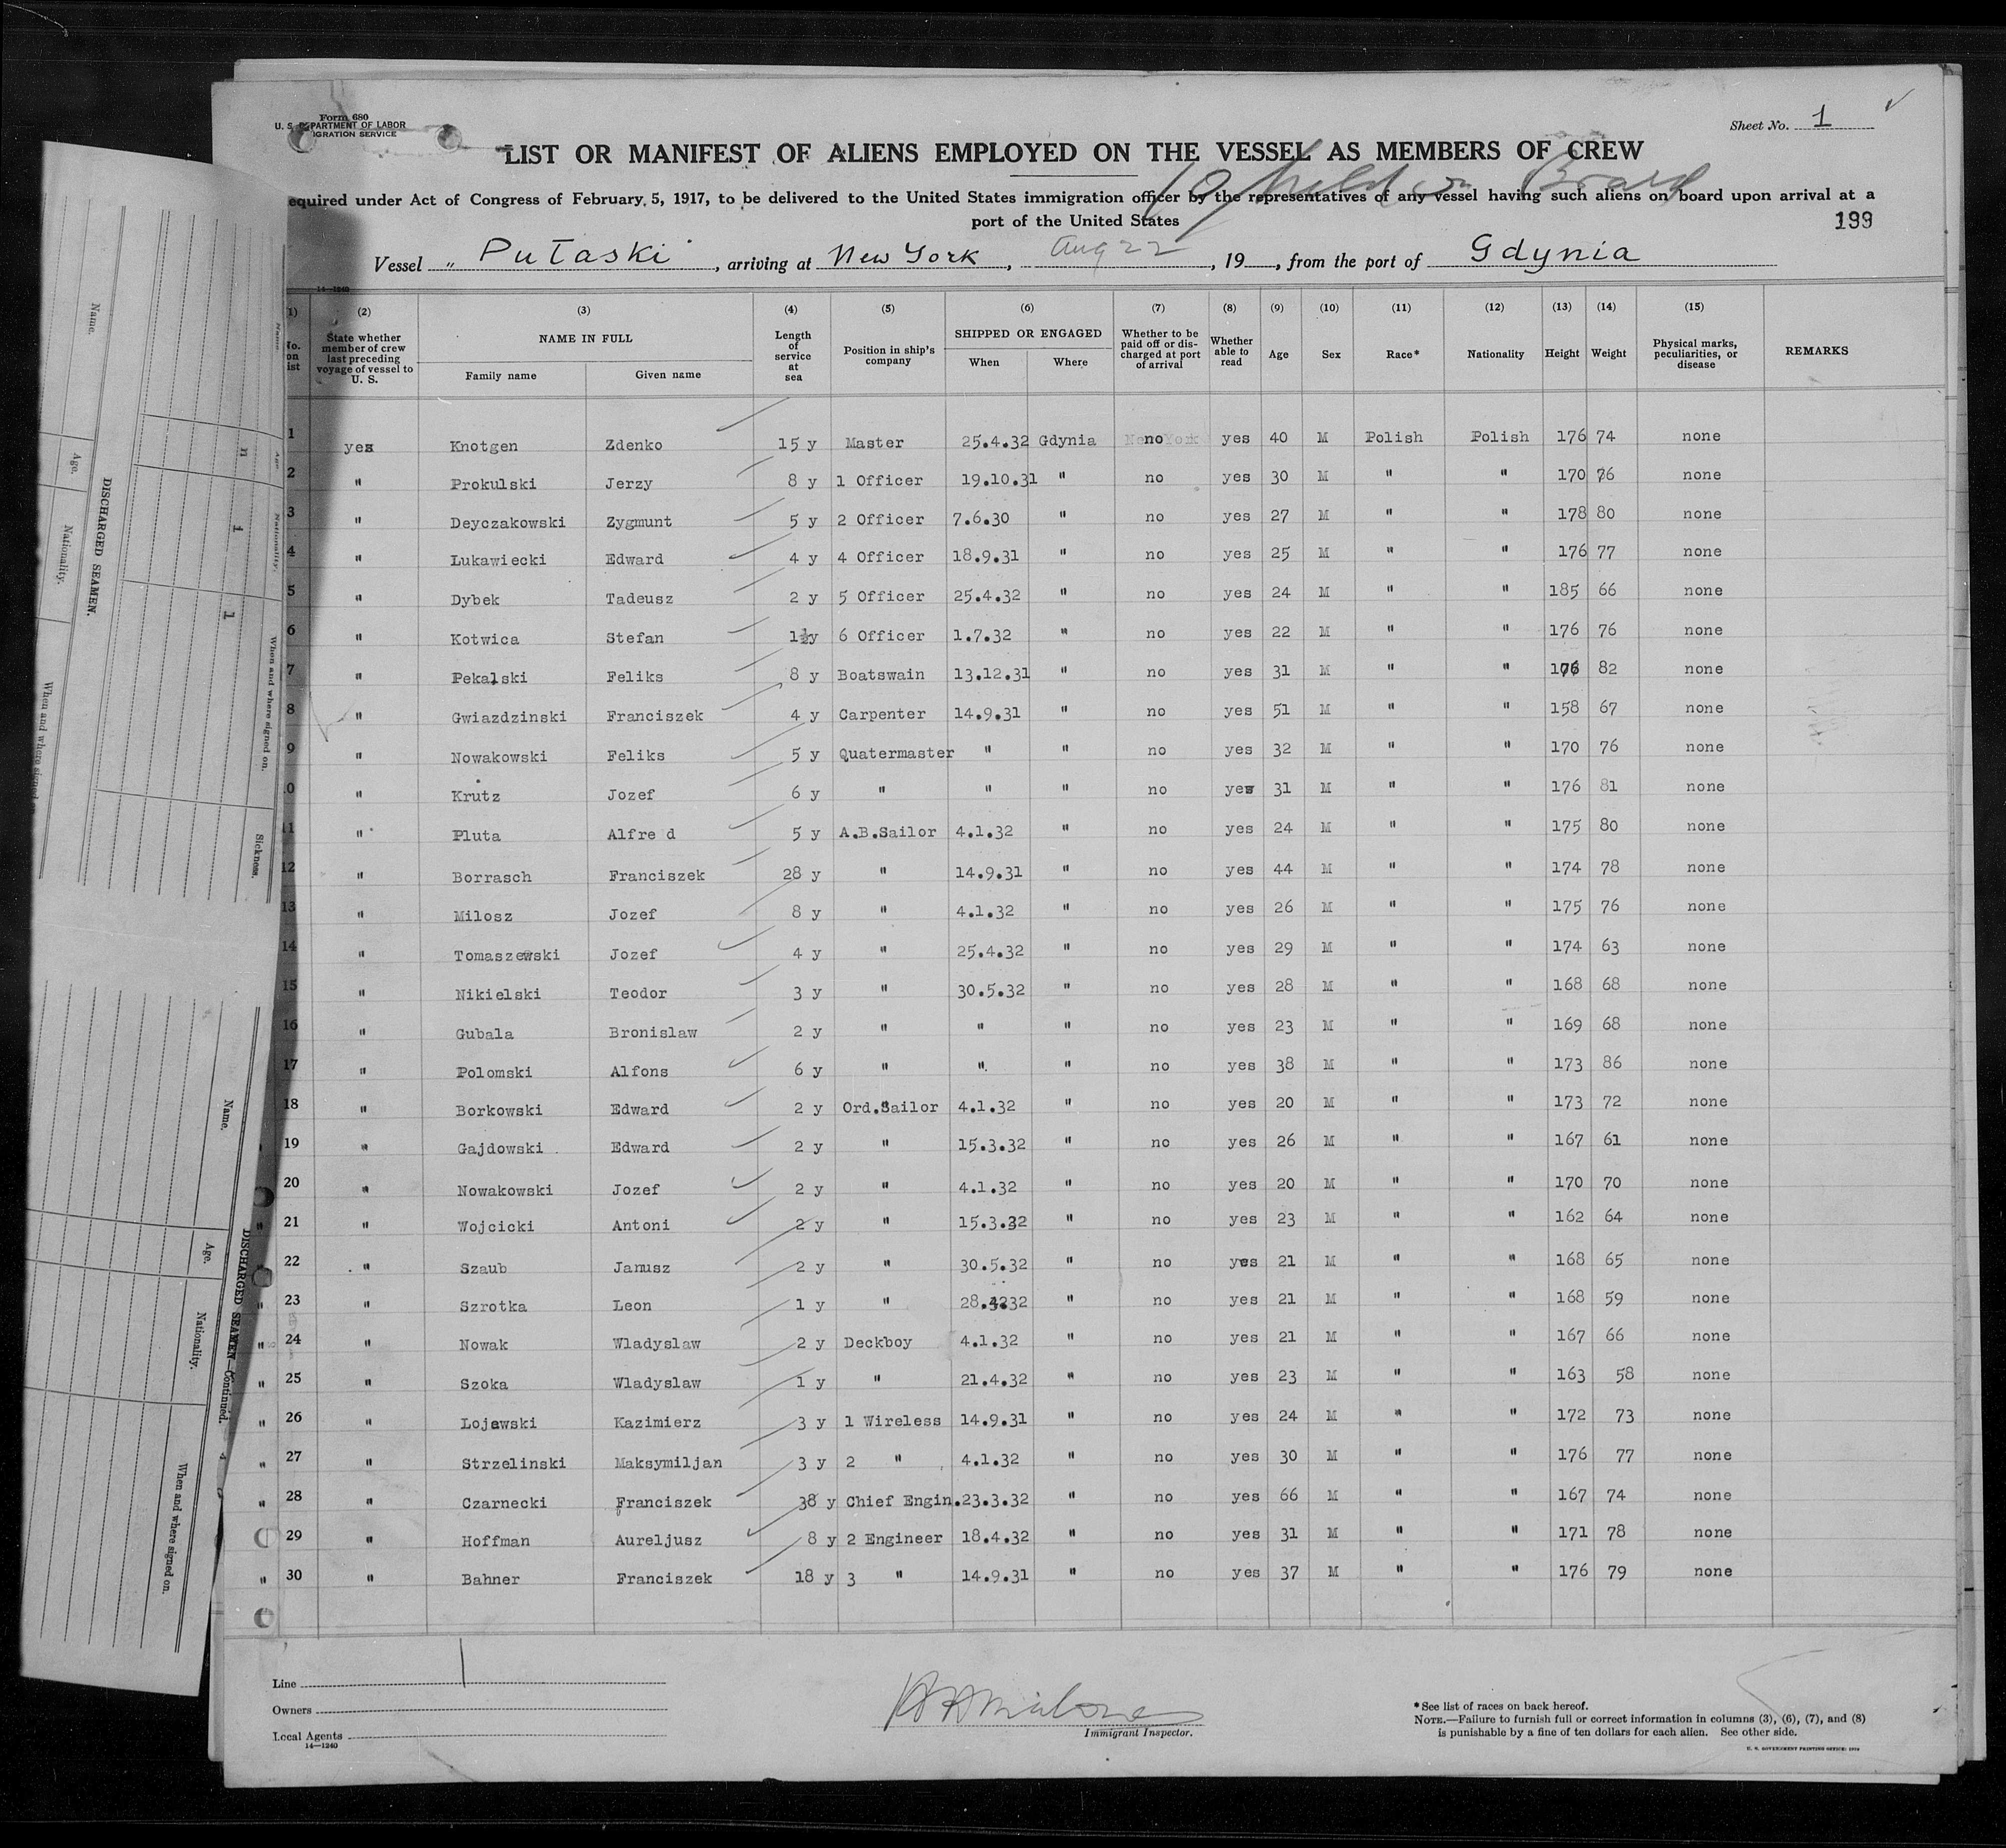 Form 680
U. S. DEPARTMENT OF LABOR
IGRATION SERVICE
Sheet No. 1
LIST OR MANIFEST OF ALIENS EMPLOYED ON THE VESSEL AS MEMBERS OF CREW
held on Board
equired under Act of Congress of February 5, 1917, to be delivered to the United States immigration officer by the representatives of any vessel having such aliens on board upon arrival at a
port of the United States
199
Vessel „ Pułaski , arriving at New York , Aug 22 , 19 , from the port of Gdynia
14—1240
(1) (2) (3) (4) (5) (6) (7) (8) (9) (10) (11) (12) (13) (14) (15)
No. on list State whether member of crew last preceding voyage of vessel to U. S. NAME IN FULL Family name Given name Length of service at sea Position in ship's company SHIPPED OR ENGAGED When Where Whether to be paid off or discharged at port of arrival Whether able to read Age Sex Race* Nationality Height Weight Physical marks, peculiarities, or disease REMARKS
1 yes Knotgen Zdenko 15 y Master 25.4.32 Gdynia no yes 40 M Polish Polish 176 74 none
2 " Prokulski Jerzy 8 y 1 Officer 19.10.31 " no yes 30 M " " 170 76 none
3 " Deyczakowski Zygmunt 5 y 2 Officer 7.6.30 " no yes 27 M " " 178 80 none
4 " Lukawiecki Edward 4 y 4 Officer 18.9.31 " no yes 25 M " " 176 77 none
5 " Dybek Tadeusz 2 y 5 Officer 25.4.32 " no yes 24 M " " 185 66 none
6 " Kotwica Stefan 1½y 6 Officer 1.7.32 " no yes 22 M " " 176 76 none
7 " Pekalski Feliks 8 y Boatswain 13.12.31 " no yes 31 M " " 176 82 none
8 " Gwiazdzinski Franciszek 4 y Carpenter 14.9.31 " no yes 51 M " " 158 67 none
9 " Nowakowski Feliks 5 y Quatermaster " " no yes 32 M " " 170 76 none
10 " Krutz Jozef 6 y " " " no yes 31 M " " 176 81 none
11 " Pluta Alfre d 5 y A.B.Sailor 4.1.32 " no yes 24 M " " 175 80 none
12 " Borrasch Franciszek 28 y " 14.9.31 " no yes 44 M " " 174 78 none
13 " Milosz Jozef 8 y " 4.1.32 " no yes 26 M " " 175 76 none
14 " Tomaszewski Jozef 4 y " 25.4.32 " no yes 29 M " " 174 63 none
15 " Nikielski Teodor 3 y " 30.5.32 " no yes 28 M " " 168 68 none
16 " Gubala Bronislaw 2 y " " " no yes 23 M " " 169 68 none
17 " Polomski Alfons 6 y " " " no yes 38 M " " 173 86 none
18 " Borkowski Edward 2 y Ord.Sailor 4.1.32 " no yes 20 M " " 173 72 none
19 " Gajdowski Edward 2 y " 15.3.32 " no yes 26 M " " 167 61 none
20 " Nowakowski Jozef 2 y " 4.1.32 " no yes 20 M " " 170 70 none
21 " Wojcicki Antoni 2 y " 15.3.32 " no yes 23 M " " 162 64 none
22 " Szaub Janusz 2 y " 30.5.32 " no yes 21 M " " 168 65 none
23 " Szrotka Leon 1 y " " no yes 21 M " " 168 59 none
24 " Nowak Wladyslaw 2 y Deckboy 4.1.32 " no yes 21 M " " 167 66 none
25 " Szoka Wladyslaw 1 y " 21.4.32 " no yes 23 M " " 163 58 none
26 " Lojewski Kazimierz 3 y 1 Wireless 14.9.31 " no yes 24 M " " 172 73 none
27 " Strzelinski Maksymiljan 3 y 2 " 4.1.32 " no yes 30 M " " 176 77 none
28 " Czarnecki Franciszek 38 y Chief Engin. 23.3.32 " no yes 66 M " " 167 74 none
29 " Hoffman Aureljusz 8 y 2 Engineer 18.4.32 " no yes 31 M " " 171 78 none
30 " Bahner Franciszek 18 y 3 " 14.9.31 " no yes 37 M " " 176 79 none
Line
Owners
Local Agents
14—1240
Immigrant Inspector.
*See list of races on back hereof.
NOTE.—Failure to furnish full or correct information in columns (3), (6), (7), and (8)
is punishable by a fine of ten dollars for each alien. See other side.
U. S. GOVERNMENT PRINTING OFFICE: 1929
DISCHARGED SEAMEN.
Name. Age. Nationality. When and where signed on.
Name. Age. Nationality. When and where signed on. Sickness.
DISCHARGED SEAMEN—Continued.
Name. Age. Nationality. When and where signed on.